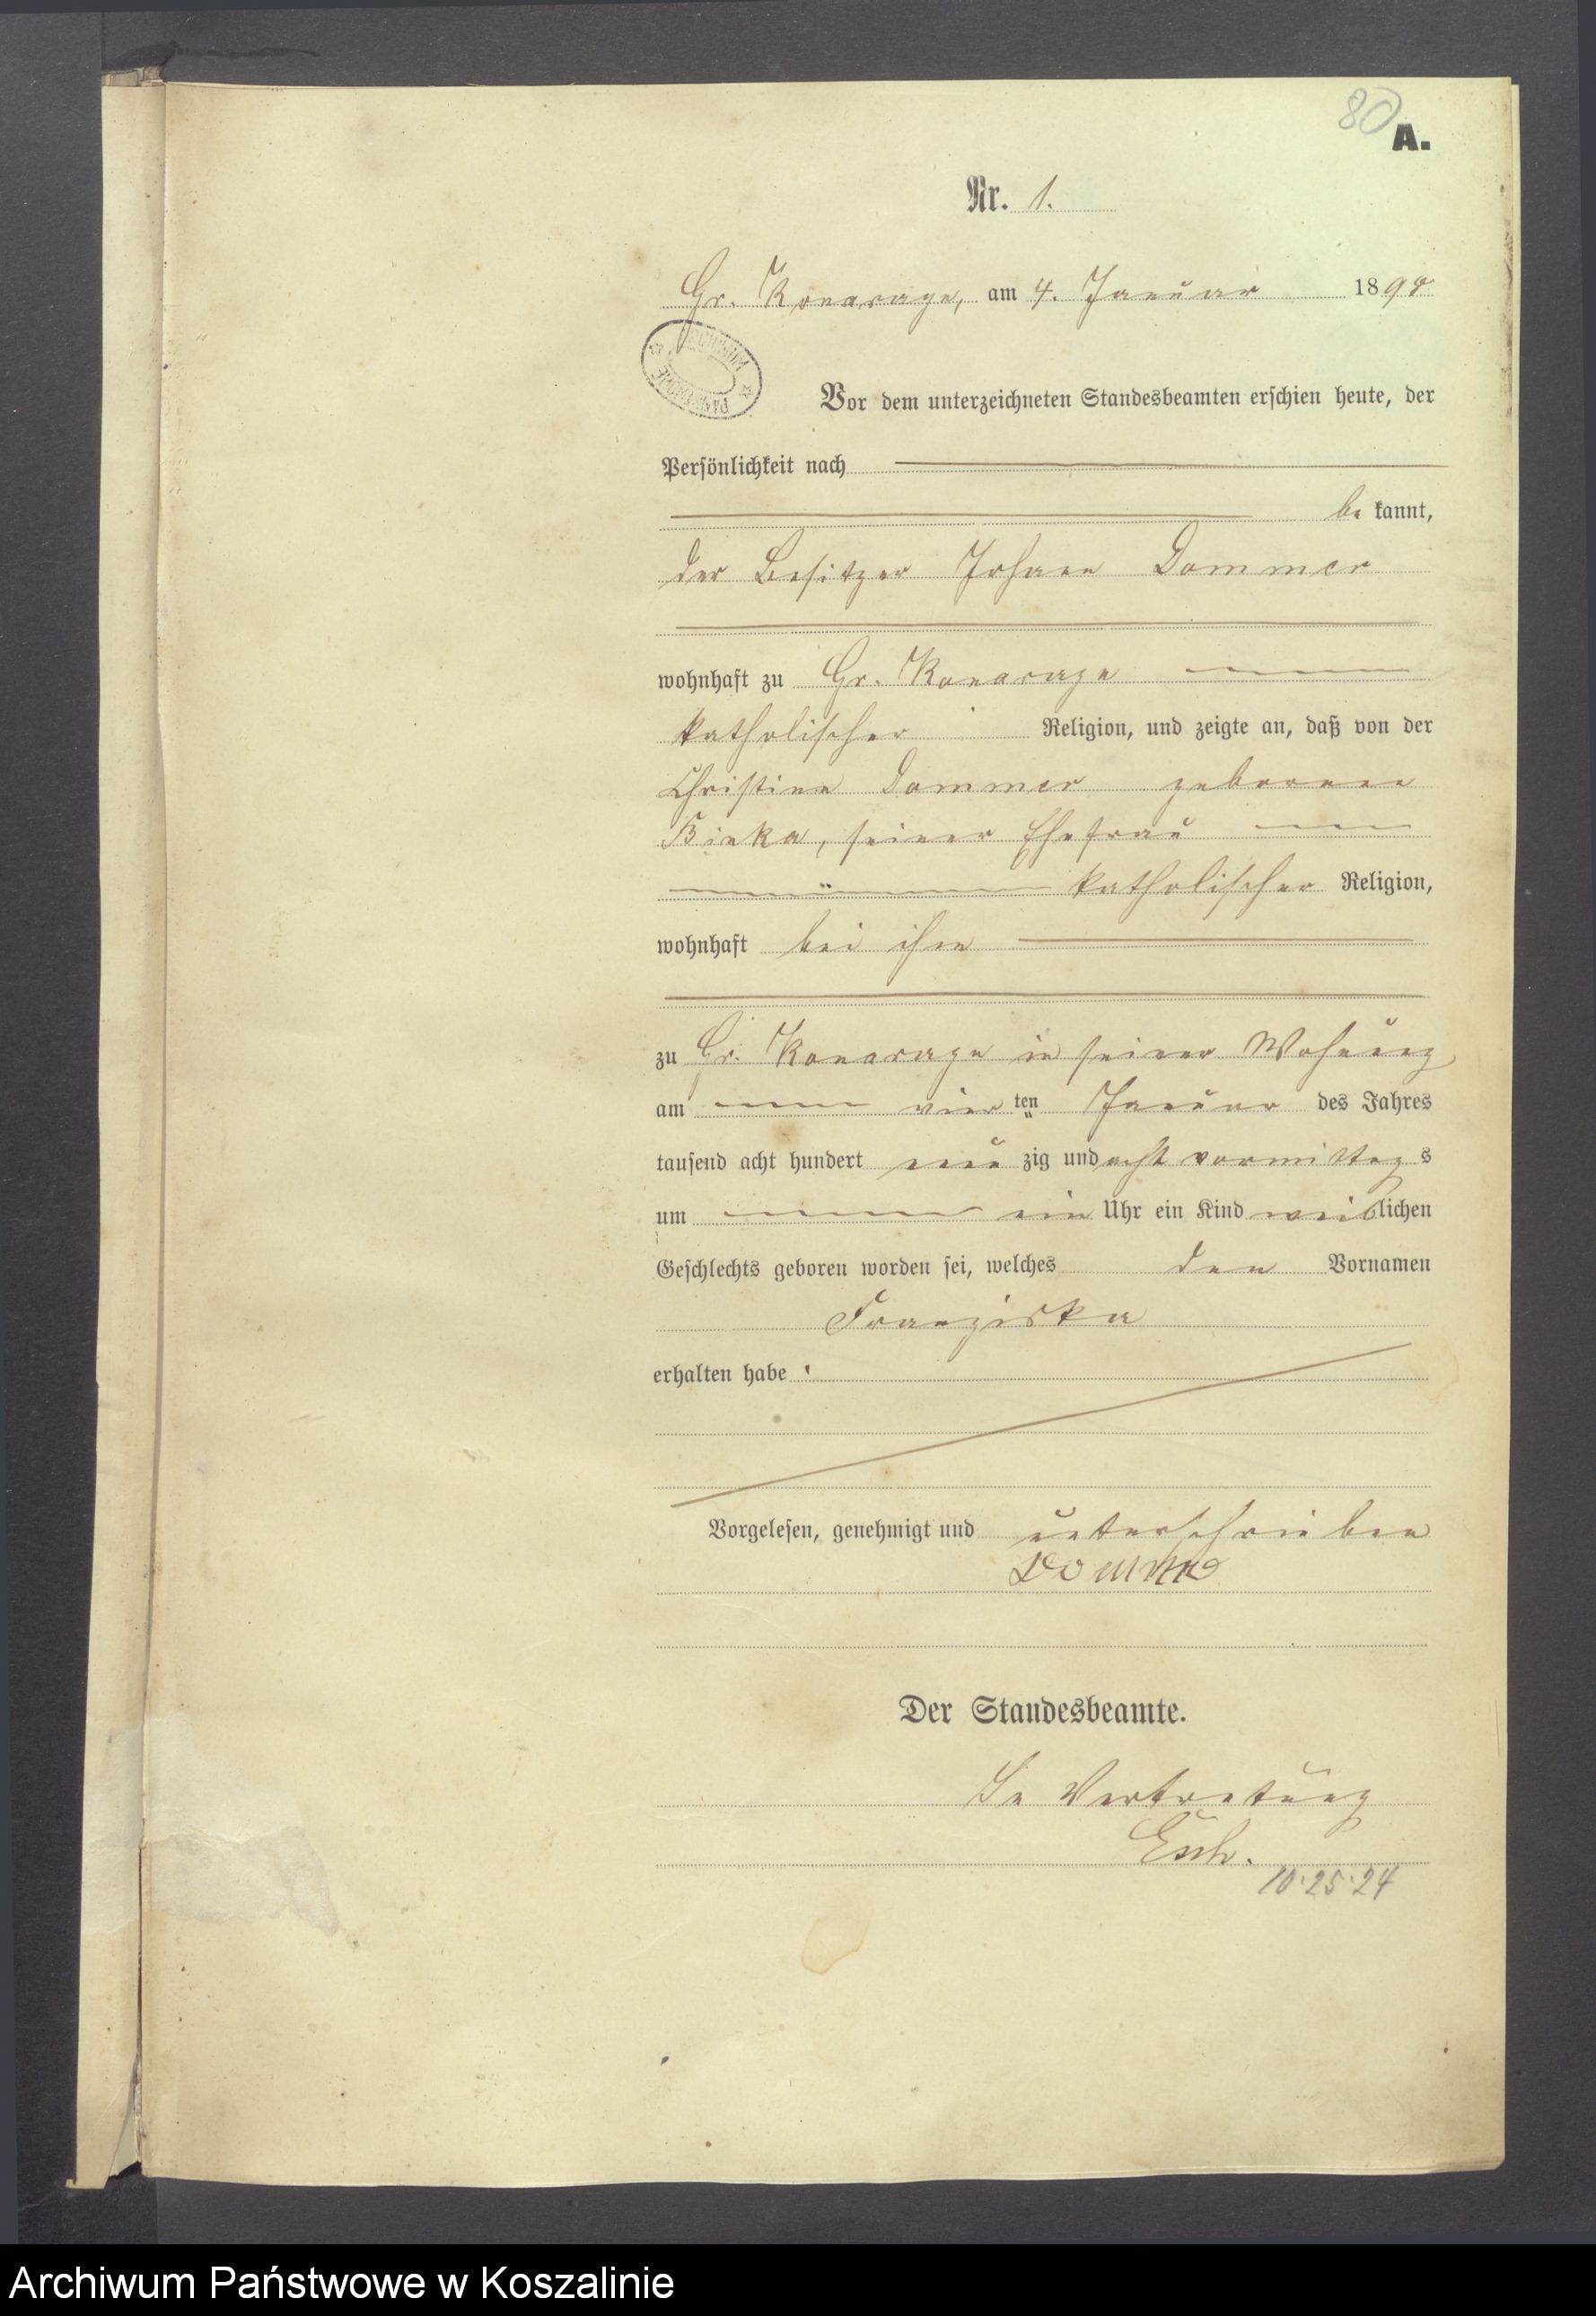 80
A.
Nr. 1.
Gr. Konarzyn, am 4. Januar 1898
Vor dem unterzeichneten Standesbeamten erschien heute, der
Persönlichkeit nach
be kannt,
der Besitzer Johann Dommer
wohnhaft zu Gr. Konarzyn
katholischer Religion, und zeigte an, daß von der
Christine Dommer geborene
seiner Ehefrau
katholischer Religion,
wohnhaft bei ihm
zu Gr. Konarzyn in seiner Wohnung
am vier ten Januar des Jahres
tausend acht hundert neun zig und acht vormittag s
um ein Uhr ein Kind weiblichen
Geschlechts geboren worden sei, welches den Vornamen
Franziska
erhalten habe.
Vorgelesen, genehmigt und unterschrieben
Dommer
Der Standesbeamte.
In Vertretung
10·25·24
Archiwum Państwowe w Koszalinie